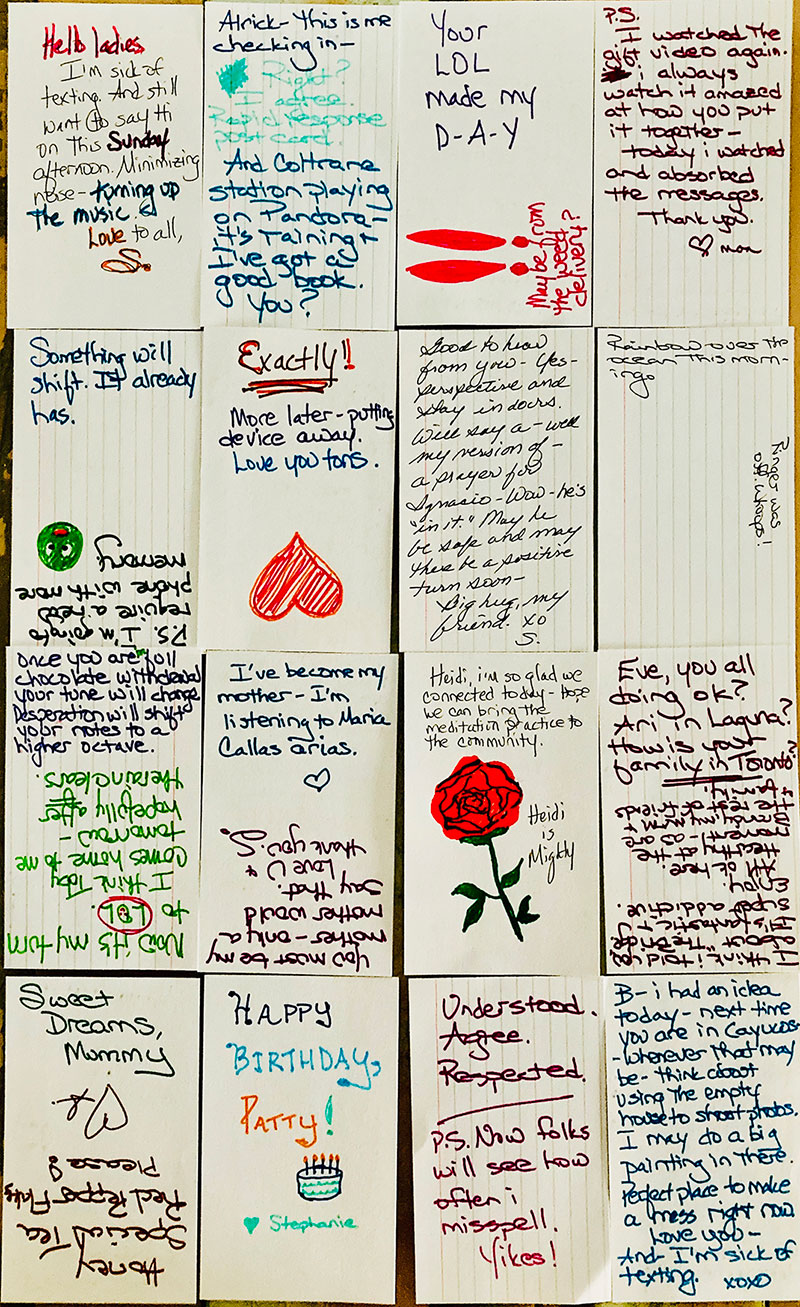 Hello ladies,
I'm sick of
texting. And still
want to say th
on this Sunday
afternoon. Minimizing
noise - turning up
the music. &
Love to all,
S.
Alrick - This is me
checking in -
Right?
I agree.
Rapid response
post card.
And Coltrane
station playing
on Pandora -
it's raining +
I've got a
good book.
You?
Your
LOL
made my
D-A-Y
Maybe from
the weed
delivery?
P.S.
I watched the
gift video again.
i always
watch it amazed
at how you put
it together -
today i watched
and absorbed
the messages.
Thank you.
mom
Something will
shift. It already
has.
P.S. I'm going to
require a new
phone with more
memory
Exactly!!
More later - putting
device away.
Love you tons.
Good to hear
from you - Yes -
perspective and
stay in doors.
Will say a - well
my version of -
a prayer for
Ignacio - Wow - he's
"in it." May he
be safe and may
there be a positive
turn soon -
Big hug, my
friend. xo
S.
Rainbow over the
ocean this morn-
ing.
Ringer was
off. Whoops!
Once you are full
chocolate withdrawal
your tune will change
Desperation will shift
your notes to a
higher octave.
Now it's my turn
to LOL.
I think Toby
comes home to me
tomorrow -
hopefully after
the rain clears.
I've become my
mother - I'm
listening to Maria
Callas arias.
You must be my
mother - only a
mother would
say that.
Love U +
thank you. S.
Heidi, i'm so glad we
connected today - Hope
we can bring the
meditation practice to
the community.
Heidi
is
Mighty
Eve, you all
doing ok?
Ari in Laguna?
How is your
family in Toronto?
I think i told u
about "The Bridge"
It's fantastic +
super addictive.
Enjoy.
All ok here.
Healthy at the
moment - as are
Bunny, my mum +
the rest of friends
+ family.
Sweet
Dreams,
Mommy
Honey
Special Tea
Red Pepper Flakes
Please?
HAPPY
BIRTHDAY,
PATTY!
Stephanie
Understood.
Agree.
Respected.
P.S. Now folks
will see how
often i
misspell.
Yikes!
B - i had an idea
today - next time
you are in Cayucos
- whenever that may
be - think about
using the empty
house to shoot photos.
I may do a big
painting in there.
Perfect place to make
a mess right now
Love you -
And - I'm sick of
texting. xoxo